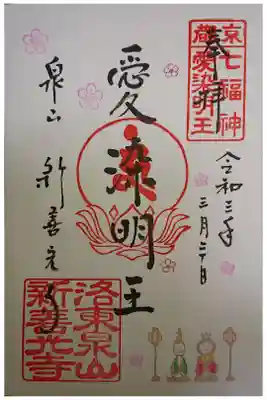 奉拝
七福神
愛染明王
令和三年
三月二十日
愛染明王
泉山 新善光寺
洛東泉山
新善光寺